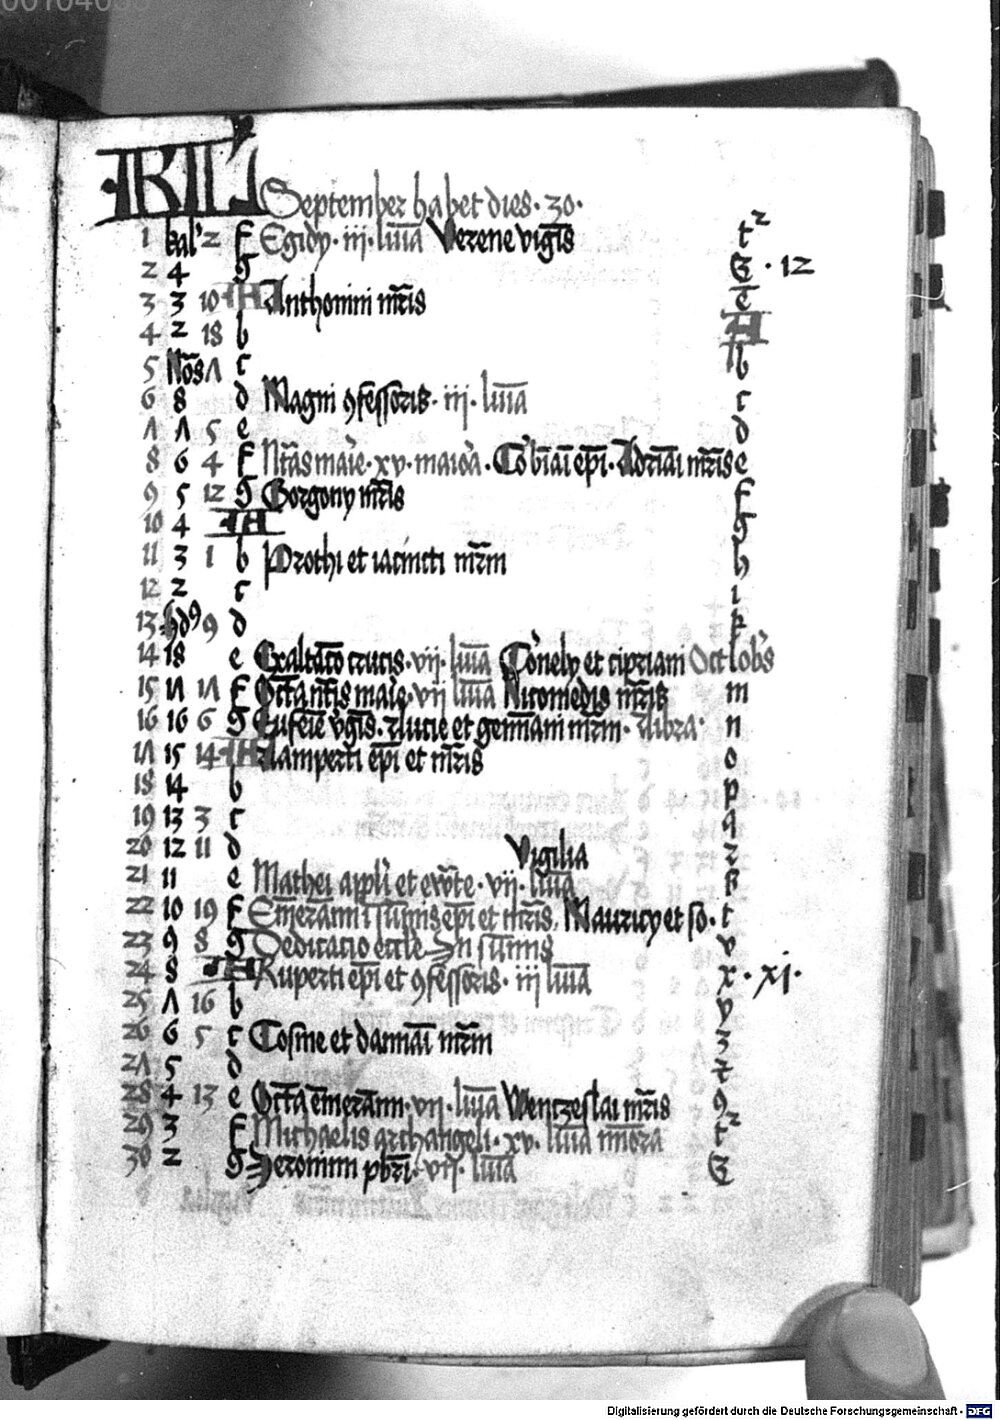 KL
September habet dies · 30 ·
1 kal' 2 f Egidy · iii · lm̄ia Verene vigīs t²
2 4 g G · 12
3 3 10 A Anthonini mr̄is e
4 2 18 b A
5 Nōs Λ c b
6 8 d Magni ꝯfessoris · iij · lm̄ia c
Λ Λ 5 e d
8 6 4 f Nt̄as maīe · xv · maiōa · Co'bīaī ep̄i · Adrīai mr̄is e
9 5 12 g Gorgony mr̄is f
10 4 A g
11 3 1 b Prothi et iacincti mr̄m h
12 2 c i
13 Id⁹ 9 d k
14 18 e Exaltac̄o crucis · vij · lm̄ia Co'nely et cipriani Octobs l
15 1Λ 1Λ f Oct̄a nt̄is maīe · vij lm̄ia Nicomedis mr̄is m
16 16 6 g Eufeīe v̄gīs · Lucie et gem̄iani mr̄m · n
1Λ 15 14 A Lamperti ep̄i et mr̄is o
18 14 b p
19 13 3 c q
20 12 11 d Vigilia
21 11 e Mathei app̄li et ew̄te · vij · lm̄ia
22 10 19 f Em̄eram̄mi sum̄is ep̄i et mr̄is. Mauricy et so · t
23 9 8 g Dedicatio eccl̄e In sum̄is v
24 8 A Ruperti ep̄i et ꝯfessoris · iij lm̄ia x · xi ·
25 Λ 16 b y
26 6 5 c Cosme et damiāi mr̄m z
2Λ 5 d
28 4 13 e Oct̄a em̄eram̄mi · vij · lm̄ia Wentzeslai mr̄is 9
29 3 f Michaelis archangeli · xv · lm̄ia t²
30 2 g Jeronimi pbr̄i · vij · lm̄ia G
Digitalisierung gefördert durch die Deutsche Forschungsgemeinschaft - DFG